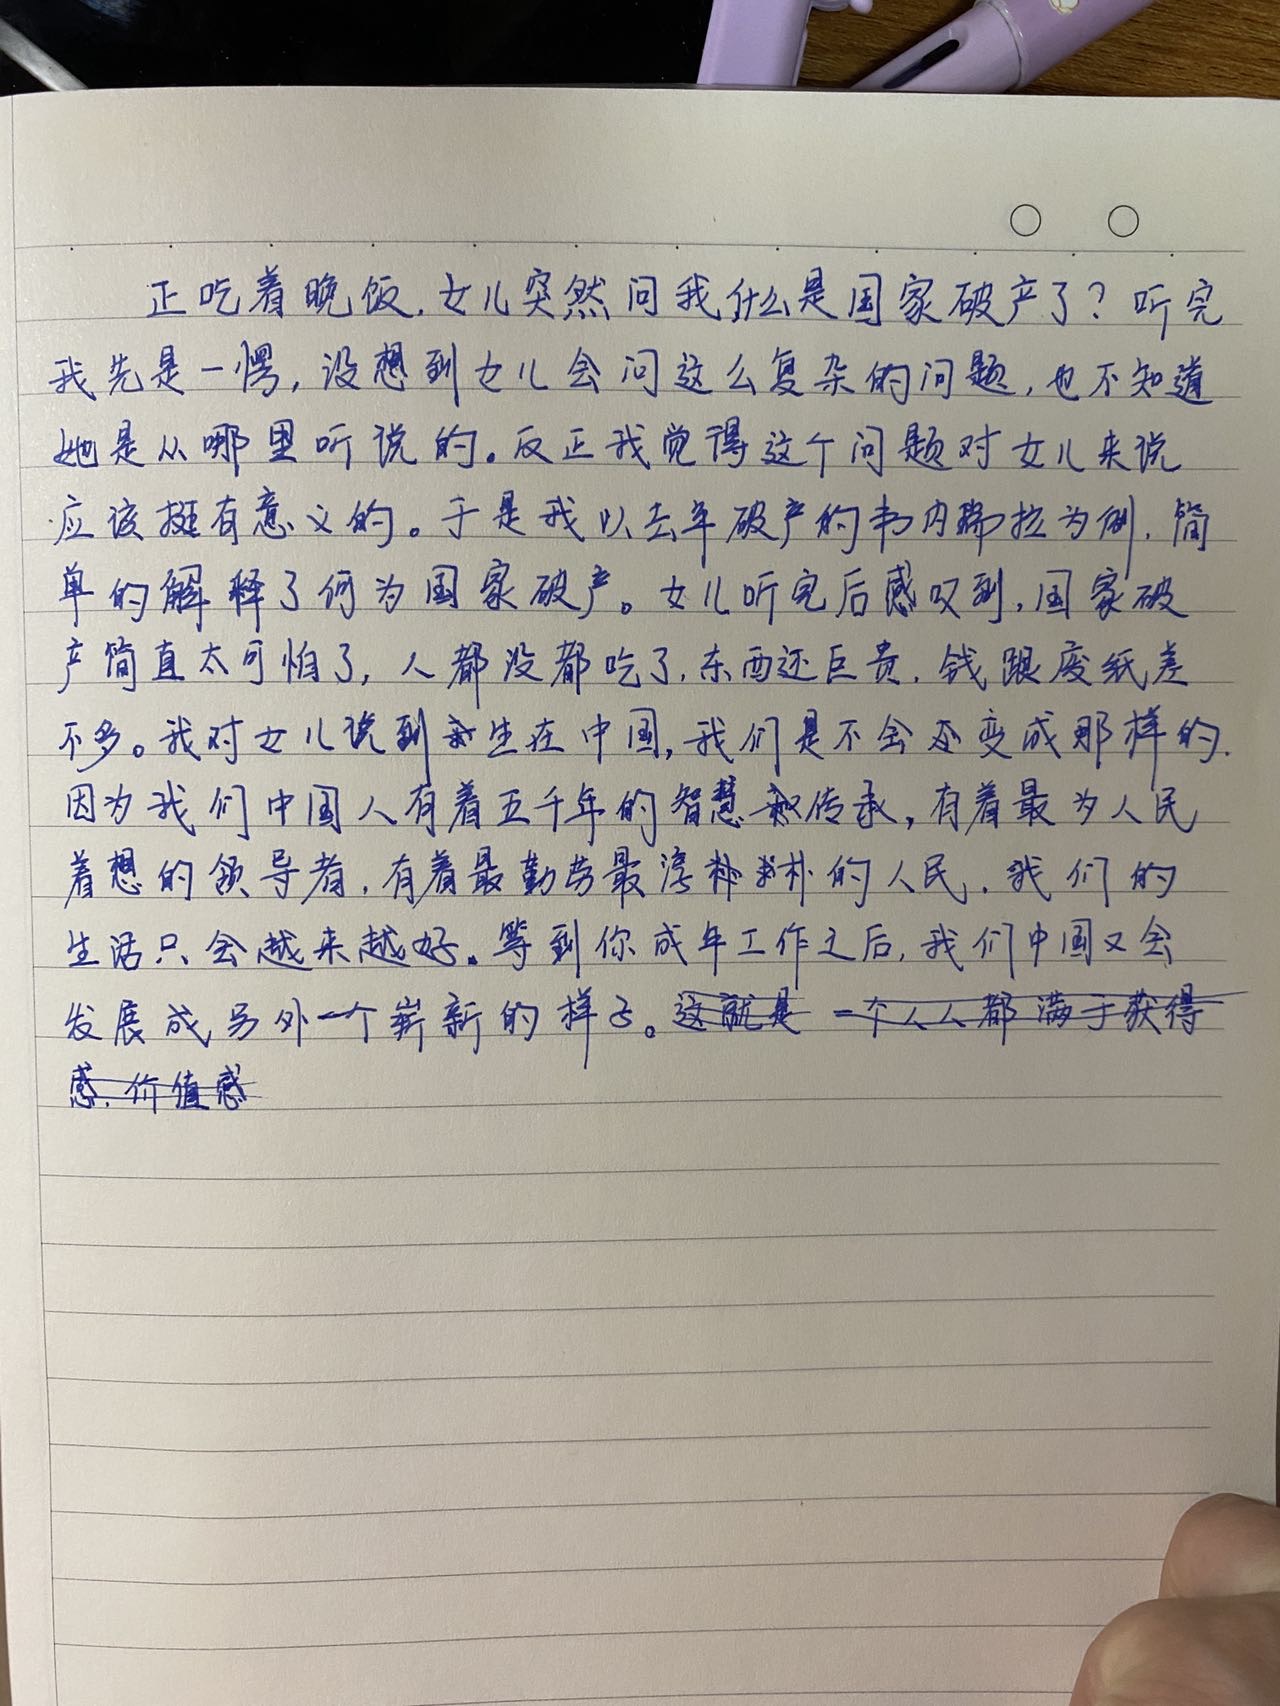 正吃着晚饭,女儿突然问我什么是国家破产了?听完
我先是一愣,没想到女儿会问这么复杂的问题,也不知道
她是从哪里听说的。反正我觉得这个问题对女儿来说
应该挺有意义的。于是我以去年破产的韦内瑞拉为例,简
单的解释了何为国家破产。女儿听完后感叹到,国家破
产简直太可怕了,人都没都吃了,东西还巨贵,钱跟废纸差
不多。我对女儿说到生在中国,我们是不会变成那样的.
因为我们中国人有着五千年的智慧传承,有着最为人民
着想的领导者,有着最勤劳最淳朴的人民,我们的
生活只会越来越好。等到你成年工作之后,我们中国又会
发展成另外一个崭新的样子。这就是一个人人都满于获得
感、价值感